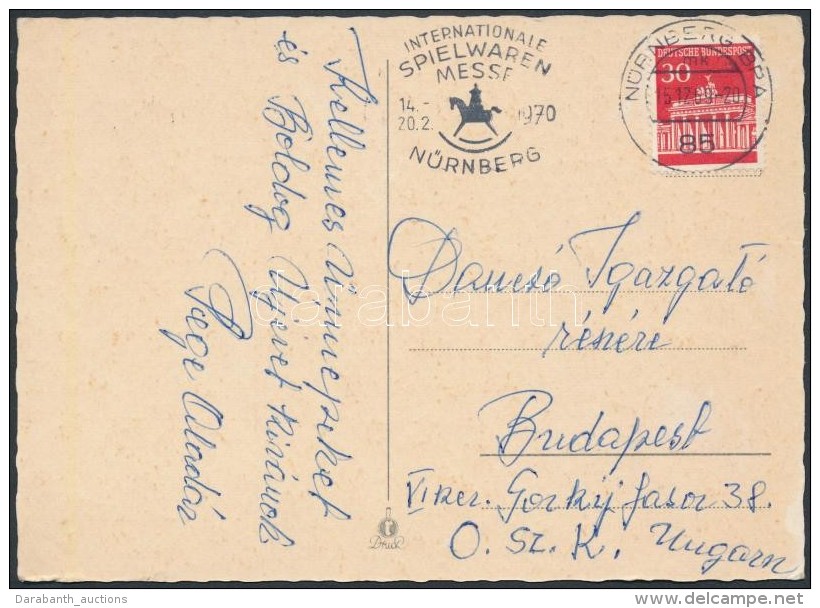 Kellemes Ünnepeket
és Boldog Újévet kívánok
Pege Aladár
INTERNATIONALE
SPIELWAREN
MESSE
14.-
20.2.
1970
NÜRNBERG
NÜRNBERG BPA
mk
15.12.69-20
85
DEUTSCHE BUNDESPOST
30
Dancsó Igazgató
részére
Budapest
VI ker. Gorkij fasor 38.
O. Sz. K. Ungarn
Druck
darabanth
Darabanth_auctions
delcampe.net